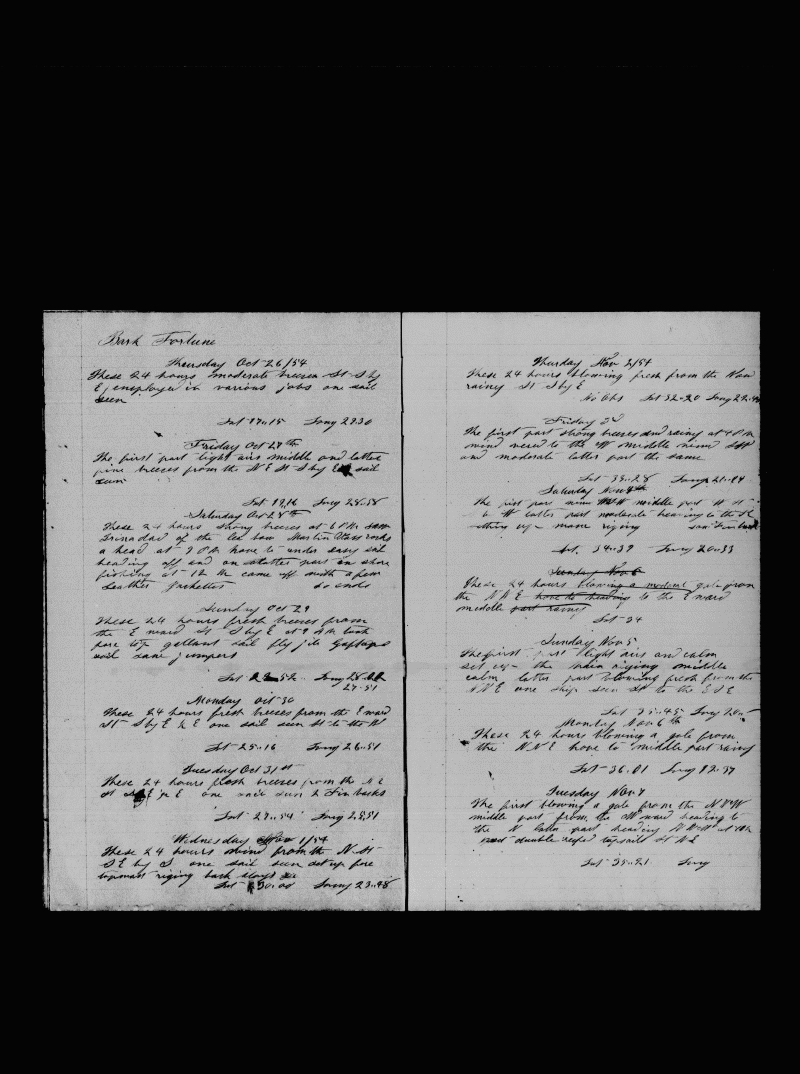 Bark Fortune
Thursday Oct 26/54
These 24 hours moderate breezes St S by
E employed in various jobs one sail
seen
Lat 17..15 Long 29.30
Friday Oct 27th
The first part light airs middle and latter
fine breezes from the N E St S by E sail
seen
Lat 19,16 Long 28..58
Saturday Oct 28th
These 24 hours strong breezes at 6 PM saw
Trinadad of the lea bow Martin Vass rocks
a head at 9 PM hove to under easy sail
heading off and on latter part in shore
fishing at 12 M came off with a few
leather jackettes so ends
Sunday Oct 29
These 24 hours fresh breezes from
the E ward St S by E at 9 AM took
fore top gallant sail fly jib Gafftops
sail jumpers
Lat 52 Long 28
27..51
Monday oct 30
These 24 hours fresh breezes from the E ward
St S by E & E one sail seen St to the W
Lat 25..16 Long 26..51
Tuesday Oct 31st
These 24 hours fresh breezes from the N E
St E one sail seen 2 Finbacks
Lat 27..54 Long 25,51
Wednesday Nov 1/54
These 24 hours wind from the N St
S E by S one sail seen set up fore
topmast riging back stays
Lat 30..00 Long 23..48
Thursday Nov 2/54
These 24 hours blowing fresh from the
rainy St S by E
No Obs Lat 32..20 Long 22..
Friday 3d
The first part strong breezes and rainy at 4 PM
wind vered to the W middle
and moderate latter part the same
Lat 33..28 Long 21..
Saturday Nov 4th
the first part wind middle part W
W latter part moderate heading to the
up main riging
Lat. 34..39 Long 20..33
Sunday Nov 6
These 24 hours blowing a gale from
the N N E hove to heading to the E ward
middle part rainy
Lat 34
Sunday Nov 5
The first part light airs and calm
set up the main riging middle
calm latter part blowing fresh from the
N N E one ship seen St to the E S E
Lat 35..45 Long 20..
Monday Nov 6th
These 24 hours blowing a gale from
the N N E hove to middle part rainy
Lat 36.01 Long 19..37
Tuesday Nov 7
The first blowing a gale from the N N W
middle part from the W ward heading to
the N latter part heading
double reefed topsail St N E
Lat 35..21 Long